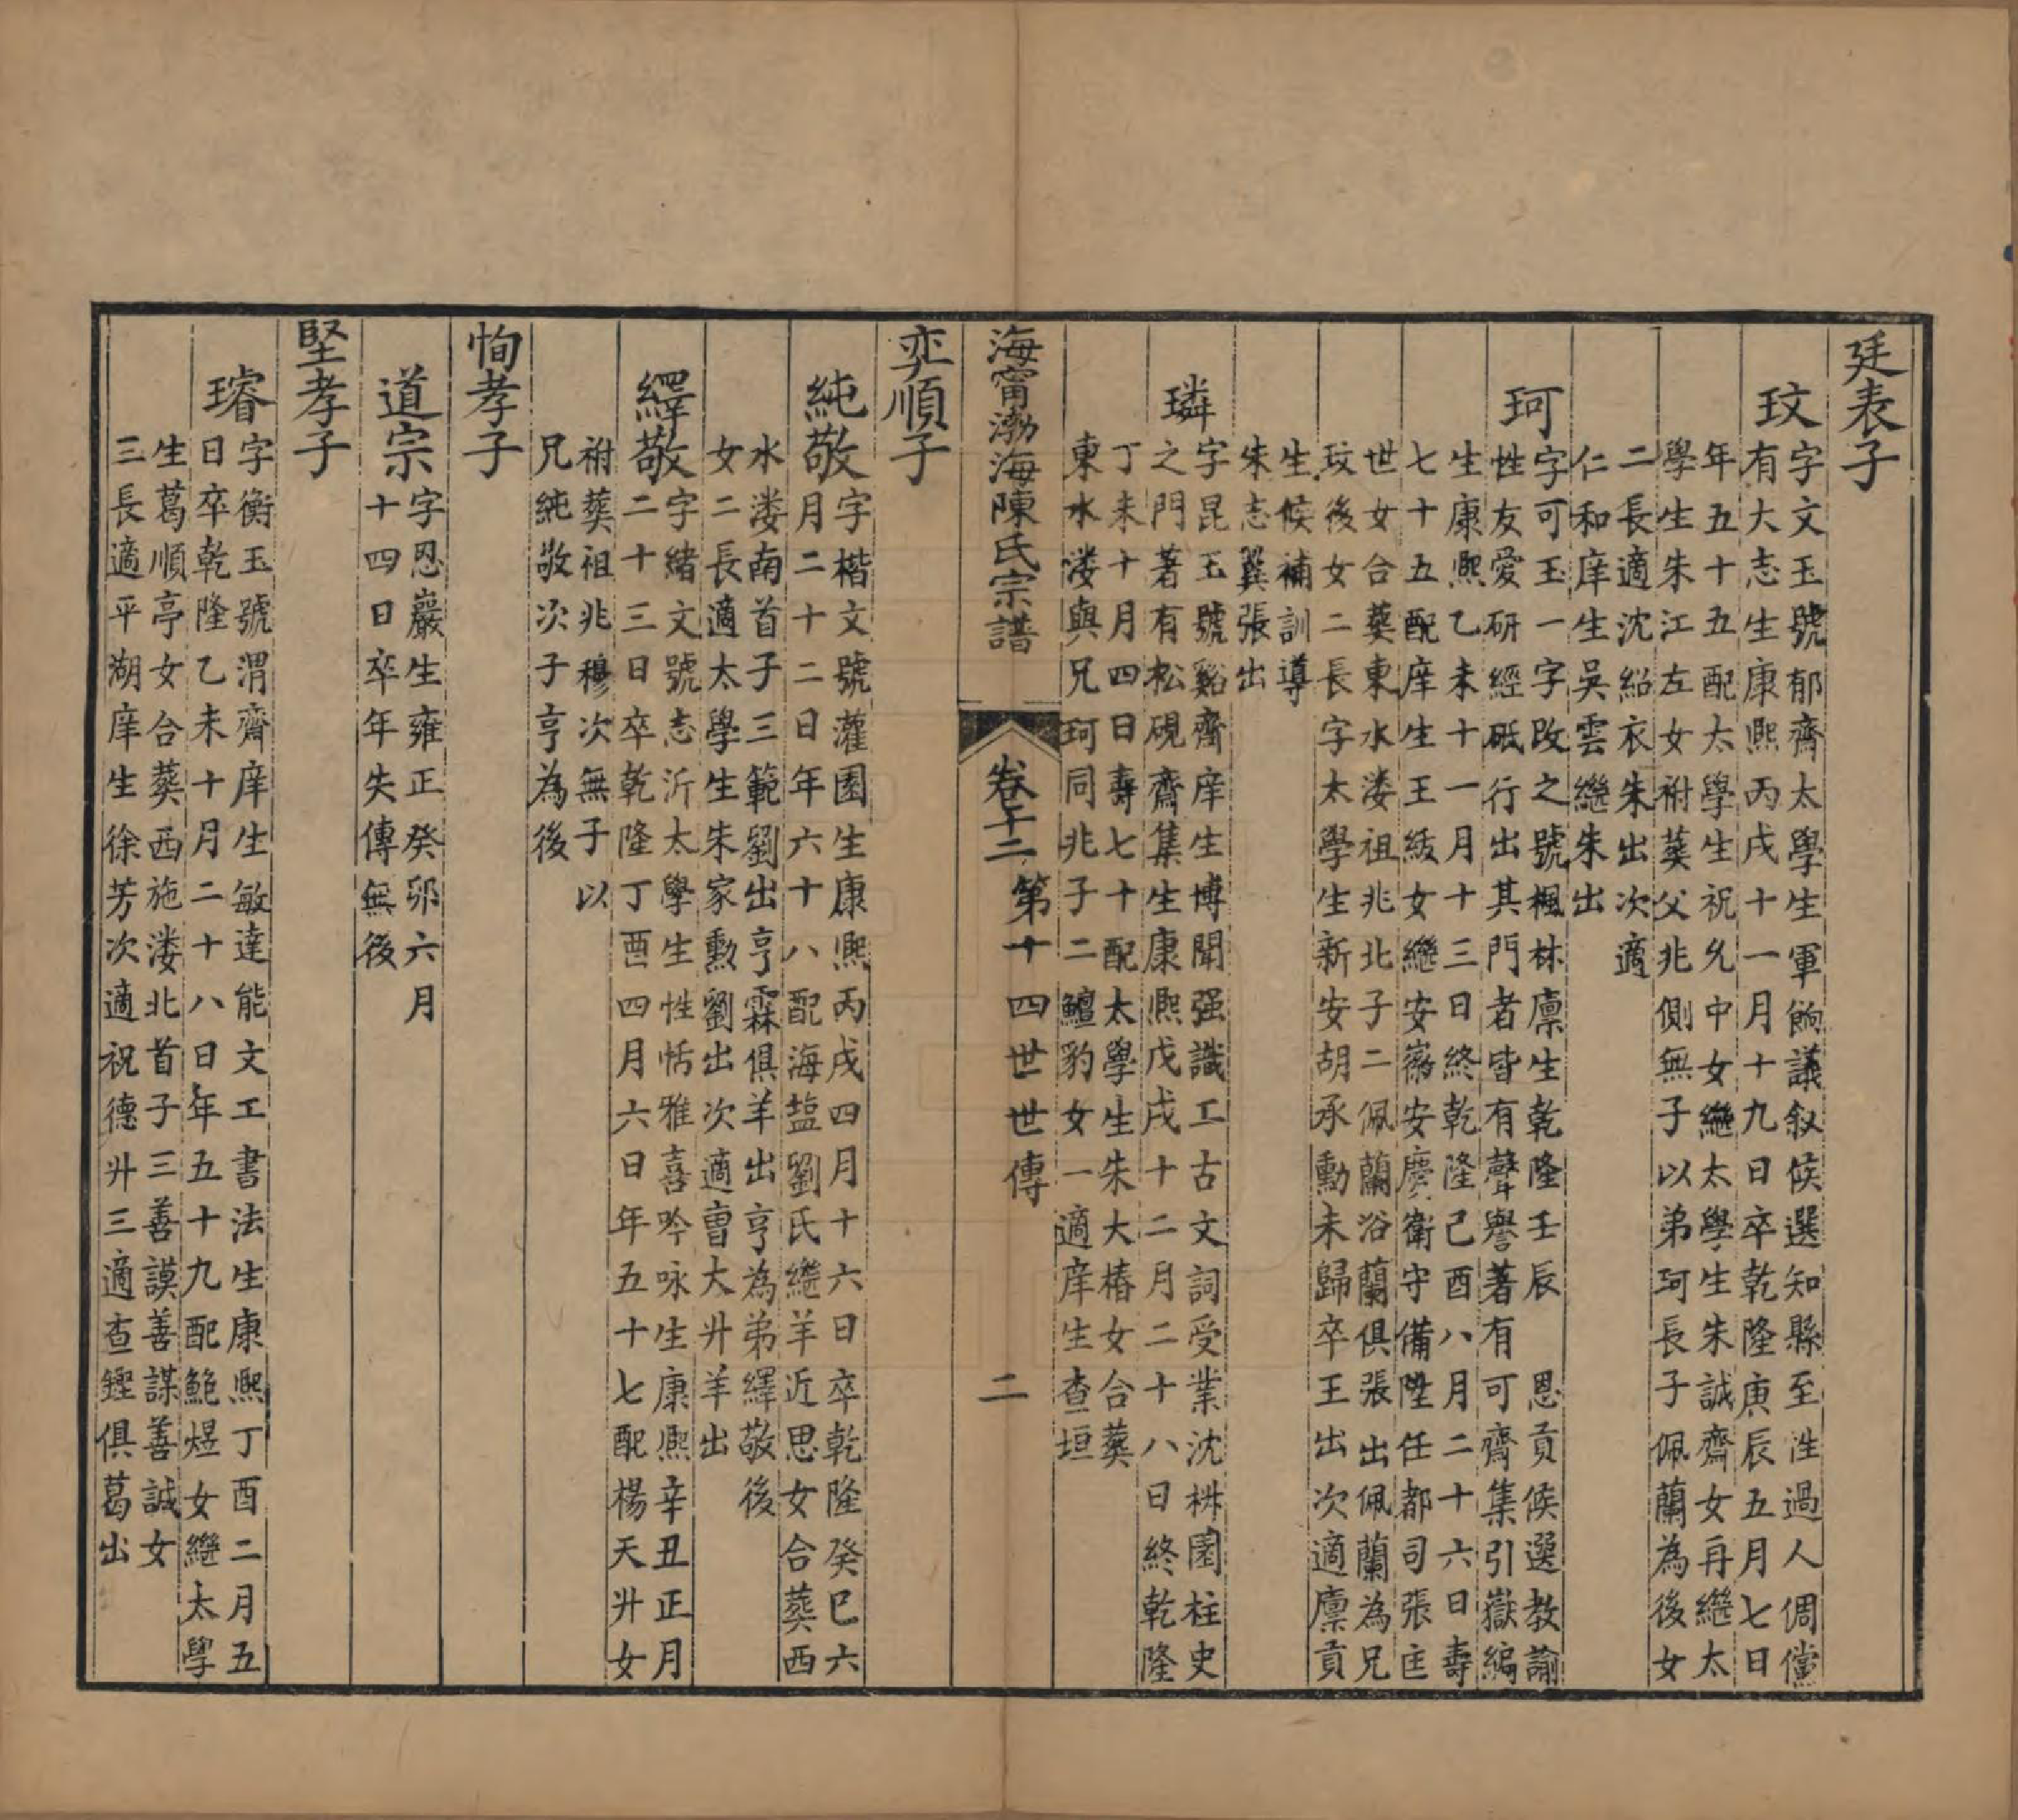 廷表子
玟
字文玉號郁齊太學生軍餉議叙候選知縣至性過人倜儻
有大志生康熙丙戌十一月十九日卒乾隆庚辰五月七日
年五十五配太學生祝允中女繼太學生朱誠齊女再繼太
學生朱江左女祔葬父兆側無子以弟珂長子佩蘭為後女
二長適沈紹衣朱出次適
仁和庠生吳雲繼朱出
珂
字可玉一字改之號楓林廩生乾隆壬辰 恩貢候選教諭
性友愛研經砥行出其門者皆有聲譽著有可齊集引嶽編
生康熙乙未十一月十三日終乾隆己酉八月二十六日壽
七十五配庠生王紱女繼安徽安慶衛守備陞任都司張匡
世女合葬東水溇祖兆北子二佩蘭浴蘭俱張出佩蘭為兄
玟後女二長字太學生新安胡承勳未歸卒王出次適廩貢
生候補訓導
朱志巽張出
璘
字昆玉號谿齊庠生博聞强識工古文詞受業沈栟園柱史
之門著有松硯齋集生康熙戊戌十二月二十八日終乾隆
丁未十月四日壽七十配太學生朱大椿女合葬
東水溇與兄珂同兆子二鱣豹女一適庠生查垣
海甯渤海陳氏宗譜
卷十二 第十四世世傳
二
奕順子
純敬
字楷文號灌園生康熙丙戌四月十六日卒乾隆癸巳六
月二十二日年六十八配海盐劉氏繼羊近思女合葬西
水溇南首子三範劉出亨霖俱羊出亨為弟繹敬後
女二長適太學生朱家勳劉出次適曺大升羊出
繹敬
字緒文號志沂太學生性恬雅喜吟咏生康熙辛丑正月
二十三日卒乾隆丁酉四月六日年五十七配楊天升女
祔葬祖兆穆次無子以
兄純敬次子亨為後
恂孝子
道宗
字恩巖生雍正癸卯六月
十四日卒年失傳無後
堅孝子
璿
字衡玉號渭齊庠生敏達能文工書法生康熙丁酉二月五
日卒乾隆乙未十月二十八日年五十九配鮑煜女繼太學
生葛順亭女合葬西施溇北首子三善謨善謀善誠女
三長適平湖庠生徐芳次適祝德升三適查鏗俱葛出